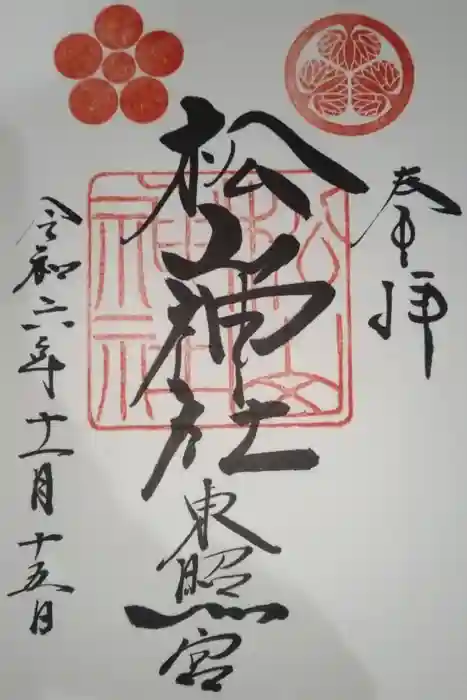 奉拝
松山神社
東照宮
令和六年十一月十五日
松山神社